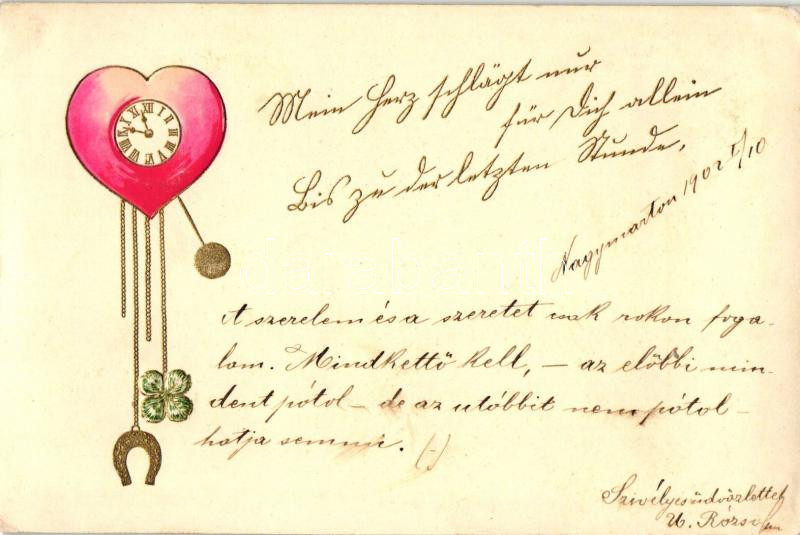 XII I II III IV V VI VII VIII IX X XI
Mein Herz schlägt nur
für Dich allein
Bis zu der letzten Stunde.
Nagymarton 1902 I/10
A szerelem és a szeretet csak rokon foga-
lom. Mindkettő kell, – az előbbi min-
dent pótol – de az utóbbit nem pótol-
hatja semmi. (–)
Szivélyes üdvözlettel
Rózsi